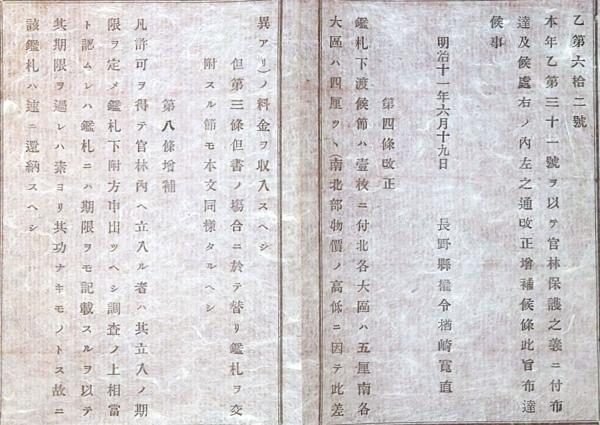 乙第六拾二號
本年乙第三十一號ヲ以テ官林保護之義ニ付布
達及候處右ノ內左之通改正增補候條此旨布達
候事
明治十一年六月十九日　長野縣權令楢崎寬直
第四條改正
鑑札下渡候節ハ壹枚ニ付北各大區ハ五厘南各
大區ハ四厘ツヽ南北部物價ノ高低ニ因テ此差
異アリ）ノ料金ヲ収入スヘシ
但第三條但書ノ塲合ニ於テ替リ鑑札ヲ交
附スル節モ本文同樣タルヘシ
第八條增補
凡許可ヲ得テ官林內ヘ立入ル者ハ其立入ノ期
限ヲ定メ鑑札下附方申出ツヘシ調査ノ上相當
ト認ムレハ鑑札ニハ期限ヲモ記載スルヲ以テ
其期限ヲ過レハ素ヨリ其功ナキモノトス故ニ
該鑑札ハ速ニ還納スヘシ